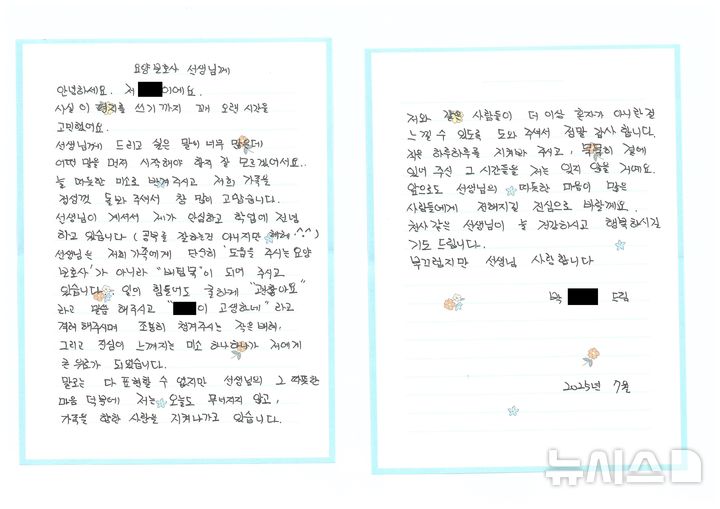 요양보호사 선생님께
안녕하세요. 저 이에요.
사실 이 편지를 쓰기까지 꽤 오랜 시간을
고민했어요.
선생님께 드리고 싶은 말이 너무 많은데
어떤 말을 먼저 시작해야 할지 잘 모르겠어서요..
늘 따뜻한 미소로 반겨주시고 저희 가족을
정성껏 돌봐 주셔서 참 많이 고맙습니다.
선생님이 계셔서 제가 안심하고 학업에 전념
하고 있습니다 (공부를 잘하는건 아니지만 헤헤 ^.^)
선생님은 저희 가족에게 단순히 '도움을 주시는 요양
보호사'가 아니라 "버팀목"이 되어 주시고
있습니다. 일이 힘들어도 굳하게 "괜찮아요"
라고 말씀 해주시고 " 이 고생하네" 라고
격려 해주시며 조용히 챙겨주시는 작은 배려,
그리고 진심이 느껴지는 미소 하나하나가 저에게
큰 위로가 되었습니다.
말로는 다 표현할 수 없지만 선생님의 그 따뜻한
마음 덕분에 저는 오늘도 무너지지 않고,
가족을 향한 사랑을 지켜나가고 있습니다.
저와 같은 사람들이 더 이상 혼자가 아니란걸
느낄 수 있도록 도와 주셔서 정말 감사합니다.
작은 하루하루를 지켜봐 주시고, 묵묵히 곁에
있어 주신 그 시간들을 저는 잊지 않을 거예요.
앞으로도 선생님의 따뜻한 마음이 많은
사람들에게 전해지길 진심으로 바랄게요.
천사같은 선생님이 늘 건강하시고 행복하시길
기도 드립니다.
부끄럽지만 선생님 사랑합니다
드림
2025년 7월
뉴시스